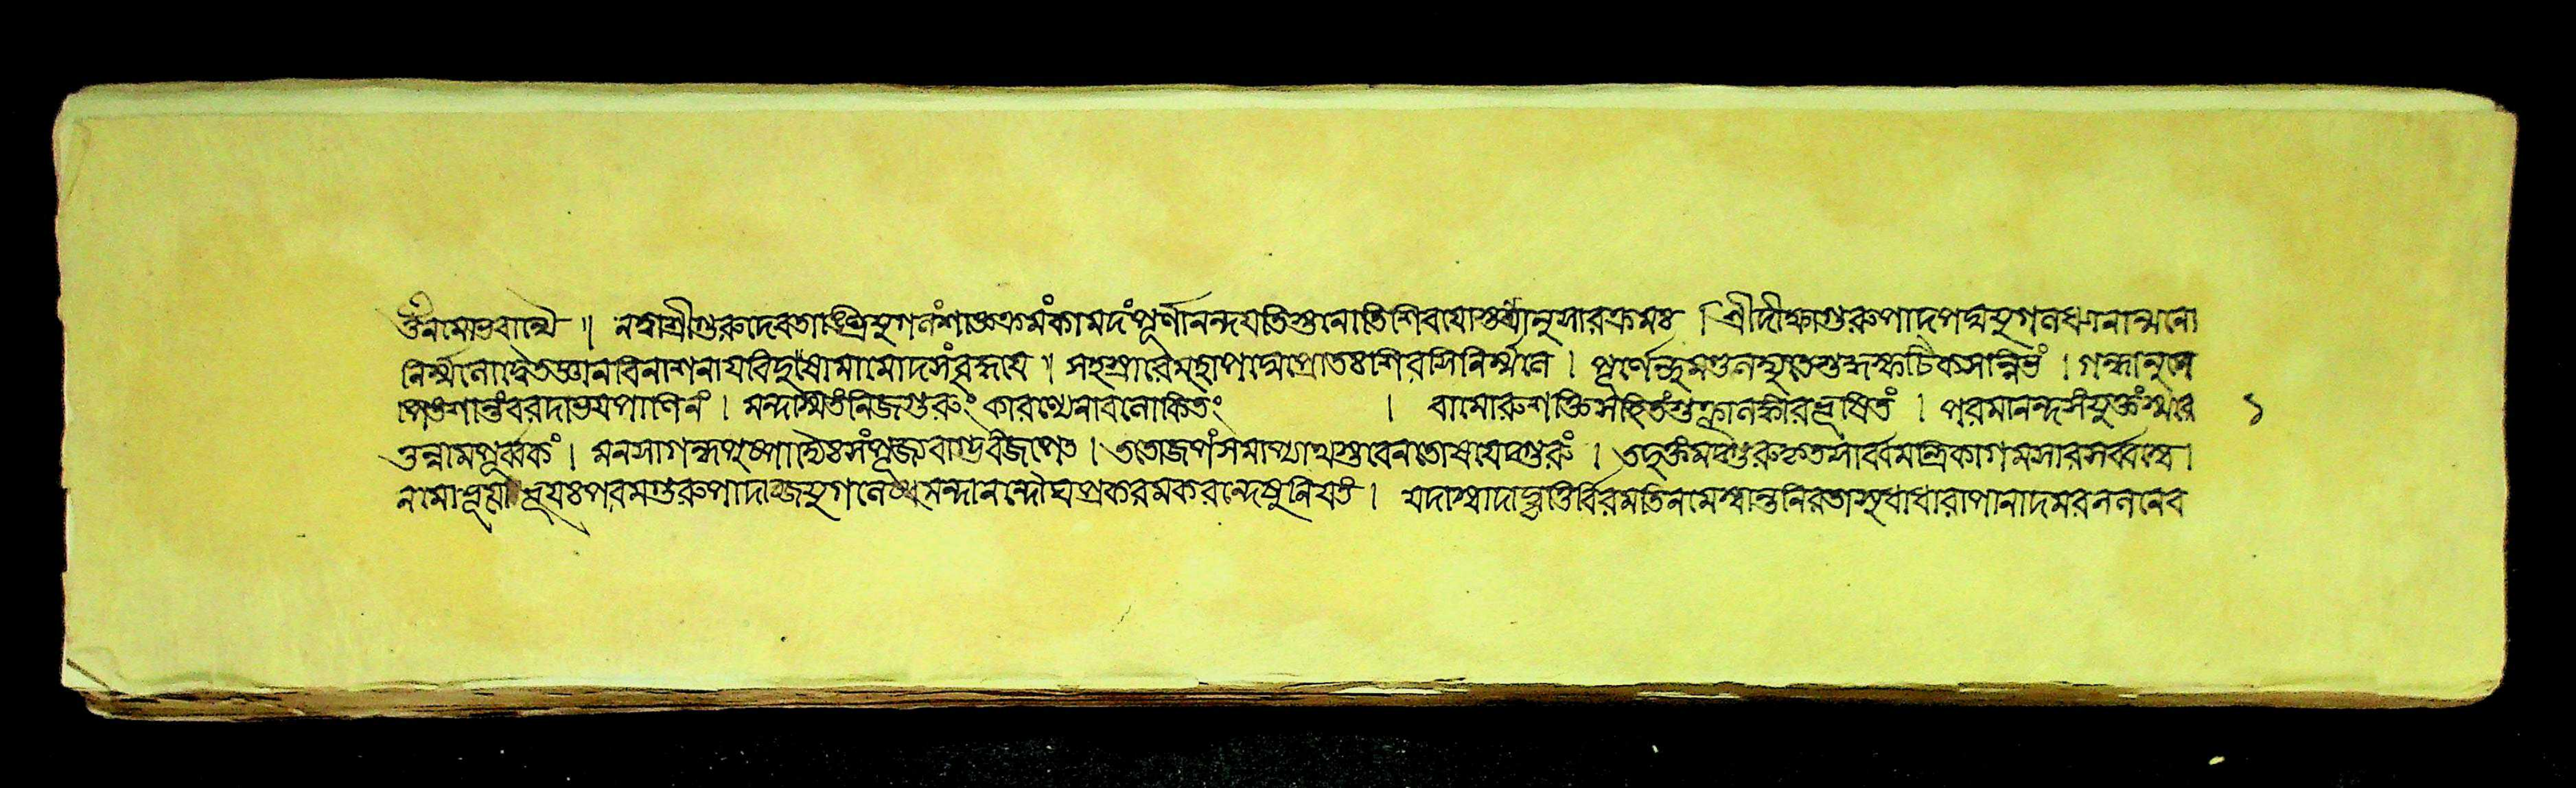 ওঁ নমো ভবান্যৈ ॥ নত্বা শ্রীগুরুদেবতাঙ্ঘ্রিযুগলং শাক্তক্রমং কামদং পূর্ণানন্দযতিস্তনোতি শিবযোস্তন্ত্রানুসারক্রমঃ । শ্রীদীক্ষাগুরুপাদপদ্মযুগলধ্যানাত্মনো
নির্ম্মলো দ্বৈতজ্ঞানবিনাশনায বিদুষামামোদসংবৃদ্ধযে ॥ সহস্রারে মহাপদ্মে প্রাতঃ শিরসি নির্ম্মলে । পূর্ণেন্দুমণ্ডল শুদ্ধস্ফটিকসন্নিভং । গন্ধানুলে
পিতং শান্তং বরদাভযপাণিনং । মন্দস্মিতং নিজগুরুং কারুণ্যেনাবলোকিতং । বামোরুশক্তিসহিতং শুক্লালঙ্কারভূষিতং । পরমানন্দসংযুক্তং স্মরে ১
ত্তন্নামপূর্ব্বকং । মনসা গন্ধপুষ্পাদ্যৈঃ সংপূজ্য বাগ্ভবং জপেৎ । ততো জপং সমাপ্যাথ স্তবেন তোষযেদ্গুরুং । তদুক্তং মদ্গুরুকৃত মন্ত্রিকাগমসারসর্ব্বস্বে ।
নমো ভূযো ভূযঃ পরমগুরুপাদাব্জযুগলে মন্দানন্দৌঘপ্রকরমকরন্দেষু নিযতং । যদাস্বাদা র্বিরমতি ন মে স্বান্তনিরতা সুধাধারাপানাদমর